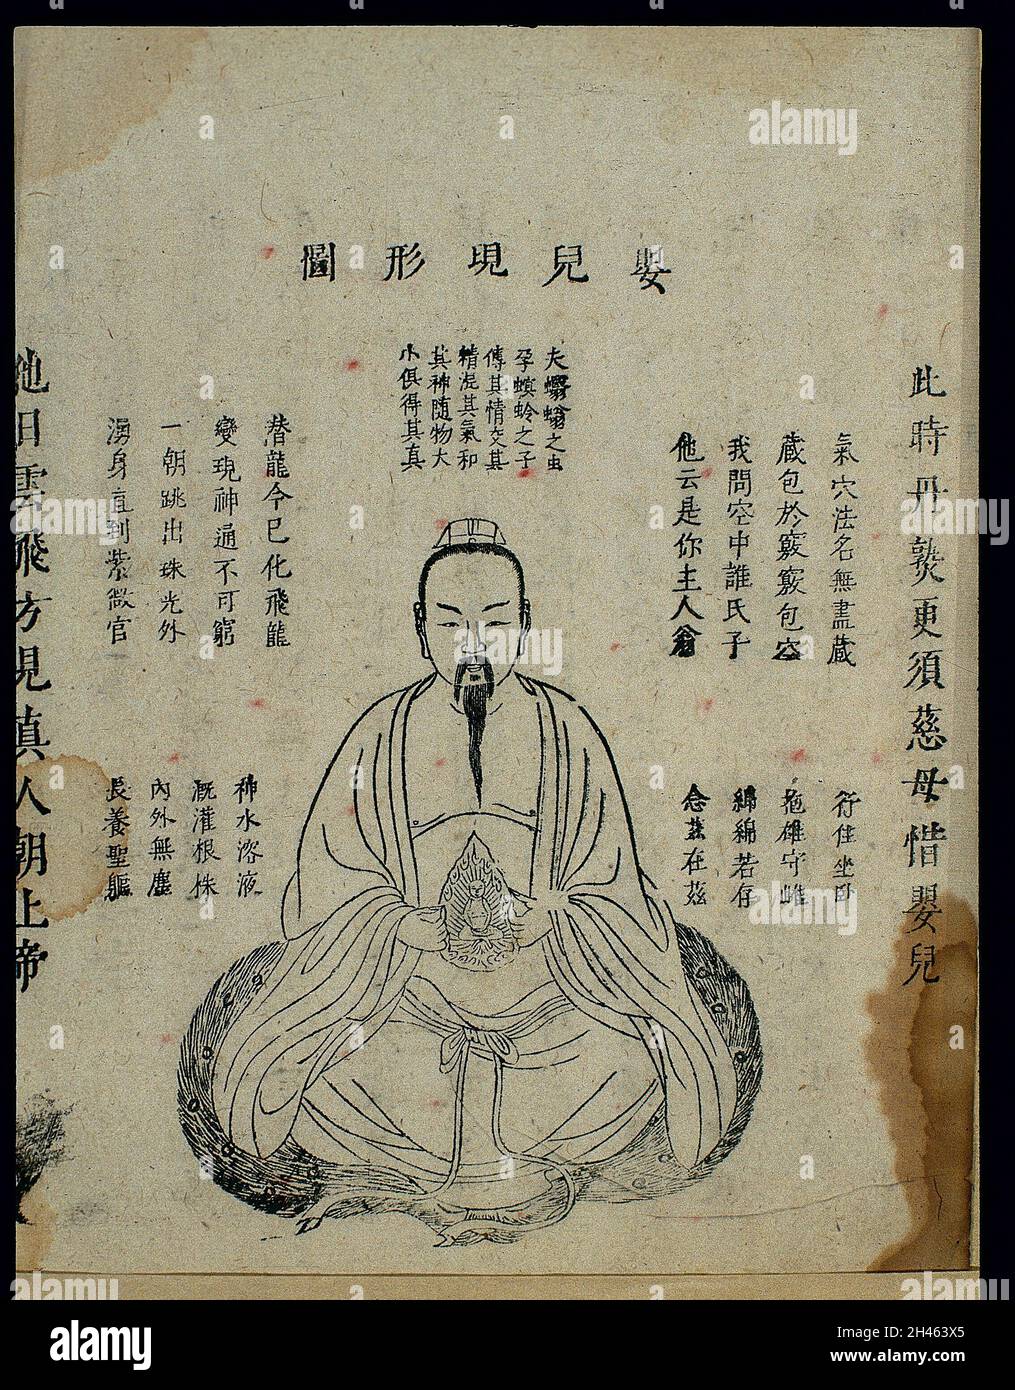 嬰兒現形圖
此時丹熟更須慈母惜嬰兒
氣穴法名無盡藏
藏包於竅竅包空
我問空中誰氏子
他云是你主人翁
行住坐卧
抱雄守雌
綿綿若存
念茲在茲
夫蠮螉之虫
孕螟蛉之子
傳其情交其
精混其氣和
其神隨物大
小俱得其真
潜龍今已化飛龍
變現神通不可窮
一朝跳出珠光外
湧身直到紫微宫
神水溶液
溉灌根株
內外無塵
長養聖軀
他日雲飛方見真人朝上帝
a alamy
alamy
Image ID: 2H463X5
www.alamy.com